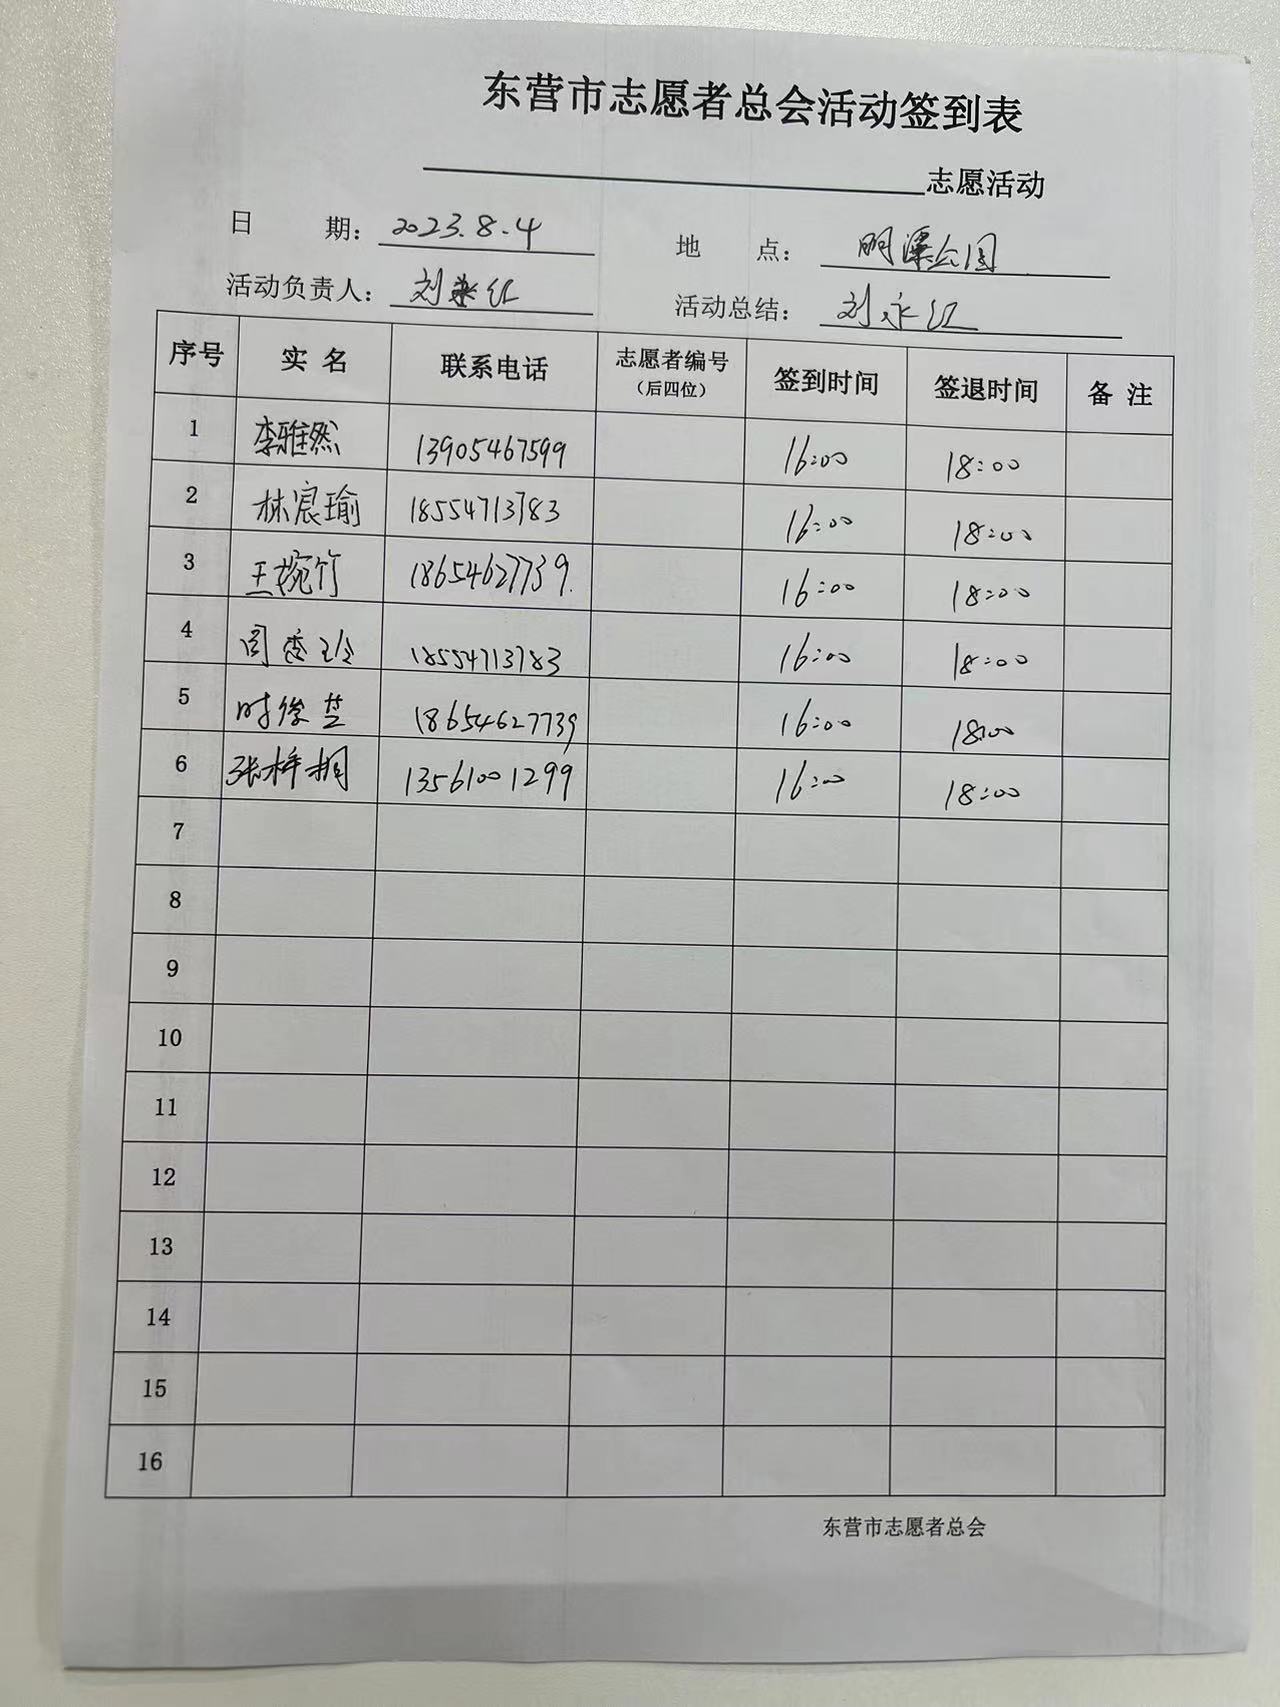 东营市志愿者总会活动签到表
志愿活动
日 期：2023.8.4 地 点：明潭公园
活动负责人：刘永红 活动总结：刘永红
序号 实名 联系电话 志愿者编号（后四位） 签到时间 签退时间 备注
1 李雅然 13905467599 16:00 18:00
2 林宸瑜 18554713783 16:00 18:00
3 王婉竹 18654627739. 16:00 18:00
4 周香玲 18554713783 16:00 18:00
5 时 18654627739 16:00 18:00
6 张梓桐 13561001299 16:00 18:00
7
8
9
10
11
12
13
14
15
16
东营市志愿者总会